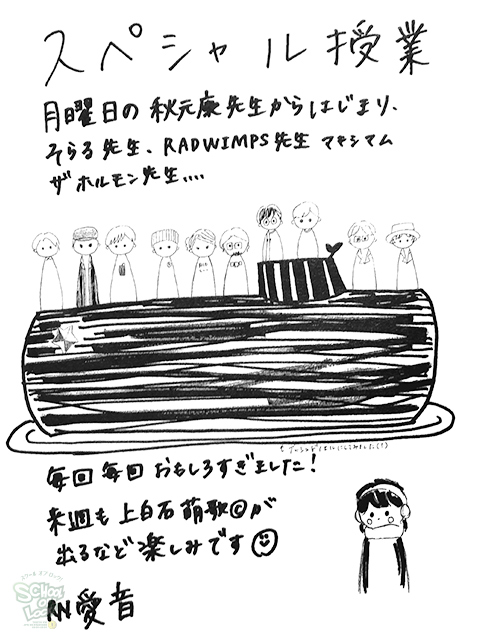 スペシャル授業
月曜日の 秋元康先生からはじまり、
そらる先生、RADWIMPS先生 マキシマム
ザホルモン先生....
毎回毎回 おもしろすぎました!
来週も 上白石萌歌◎が
出るなど 楽しみです
RN愛音
SCHOOL OF LOCK!